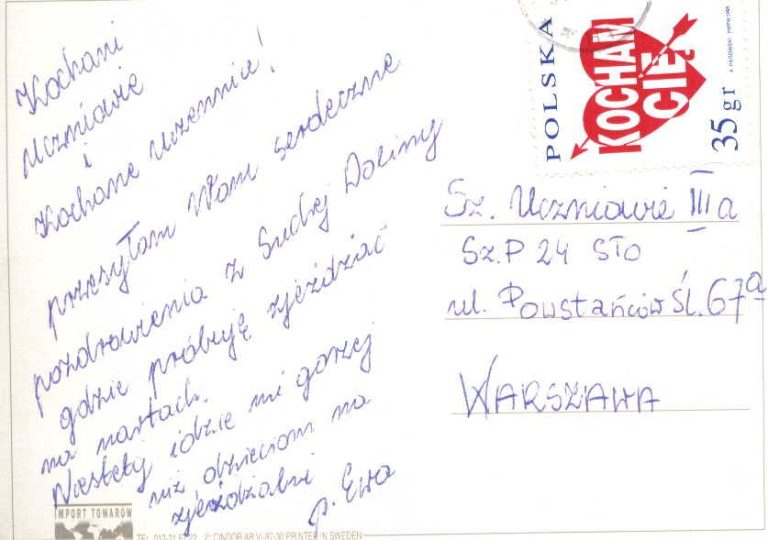 Kochani
Uczniowie
i
Kochane uczennice!
przesyłam Wam serdeczne
pozdrowienia z Suchej Doliny
gdzie próbuję zjeżdżać
na nartach.
Niestety idzie mi gorzej
niż dzieciom na
zjeżdżalni
p. Ewa
POLSKA
KOCHAM
CIĘ
35 gr
Sz. Uczniowie III a
Sz.P 24 STO
ul. Powstańców Śl. 67a
WARSZAWA
IMPORT TOWAROW
PRINTED IN SWEDEN